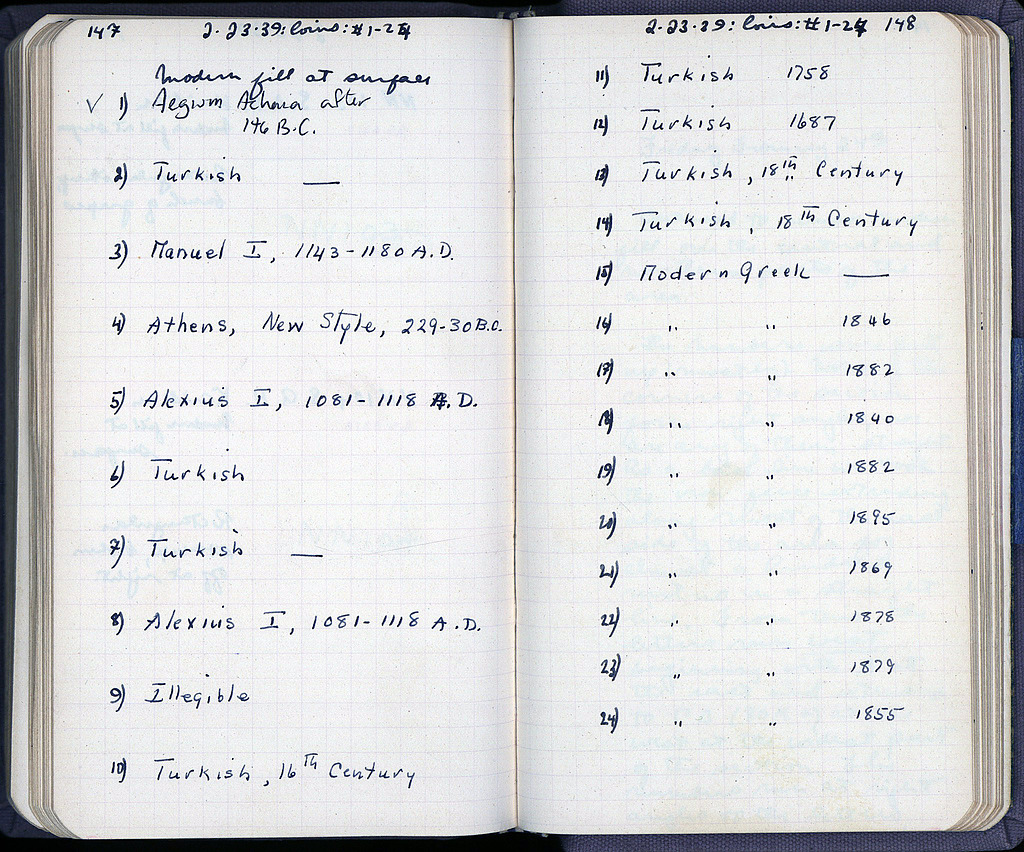 147 2.23.39: Coins: #1-24
Modern fill at surface
✓ 1) Aegium Achaia after
146 B.C.
2) Turkish —
3) Manuel I, 1143-1180 A.D.
4) Athens, New Style, 229-30 B.C.
5) Alexius I, 1081-1118 A.D.
6) Turkish
7) Turkish —
8) Alexius I, 1081-1118 A.D.
9) Illegible
10) Turkish, 16th Century
2.23.39: Coins: #1-24 148
11) Turkish 1758
12) Turkish 1687
13) Turkish, 18th Century
14) Turkish, 18th Century
15) Modern Greek —
16) " " 1846
17) " " 1882
18) " " 1840
19) " " 1882
20) " " 1895
21) " " 1869
22) " " 1878
23) " " 1879
24) " " 1855